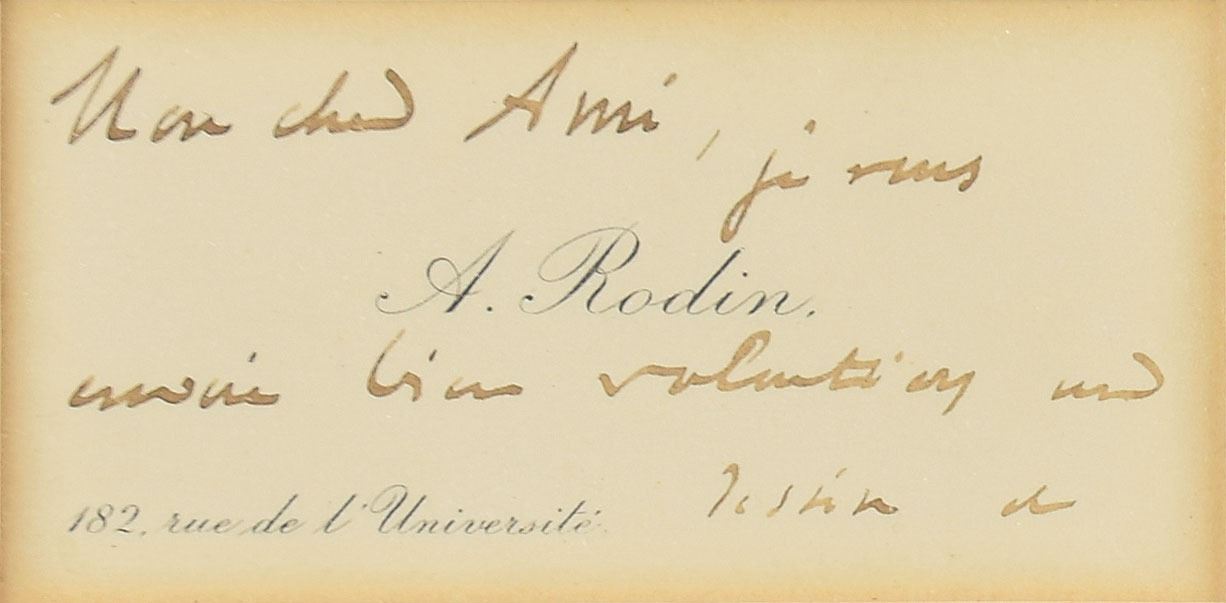 Mon cher Ami, je vous
A. Rodin.
envoie bien volontiers un
182, rue de l'Université
dessin et